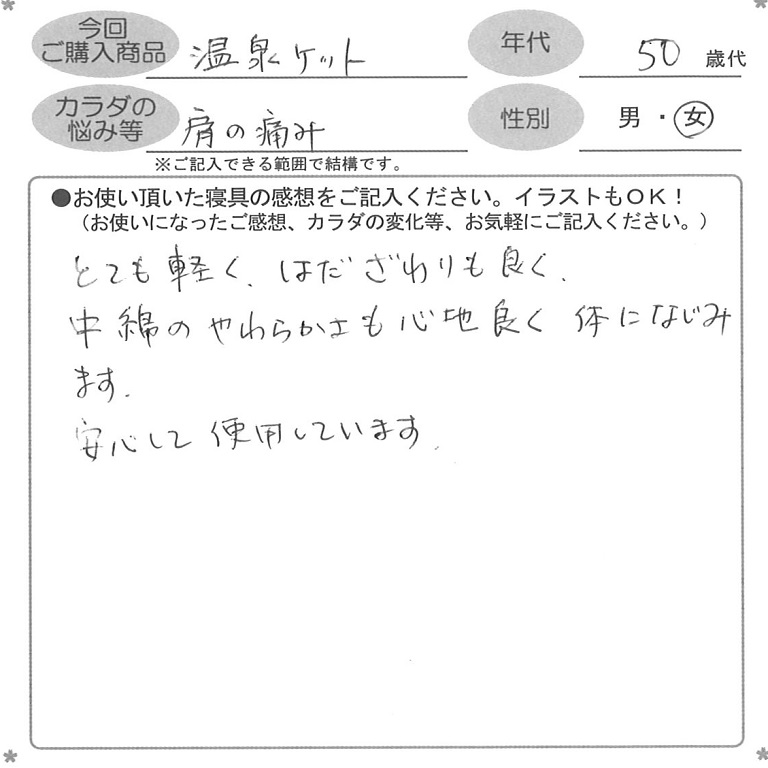 今回
ご購入商品 温泉ケット
年代 50 歳代
カラダの
悩み等 肩の痛み
性別 男・女
※ご記入できる範囲で結構です。
●お使い頂いた寝具の感想をご記入ください。イラストもOK！
（お使いになったご感想、カラダの変化等、お気軽にご記入ください。）
とても軽く、はだざわりも良く、
中綿のやわらかさも心地良く体になじみ
ます。
安心して使用しています。